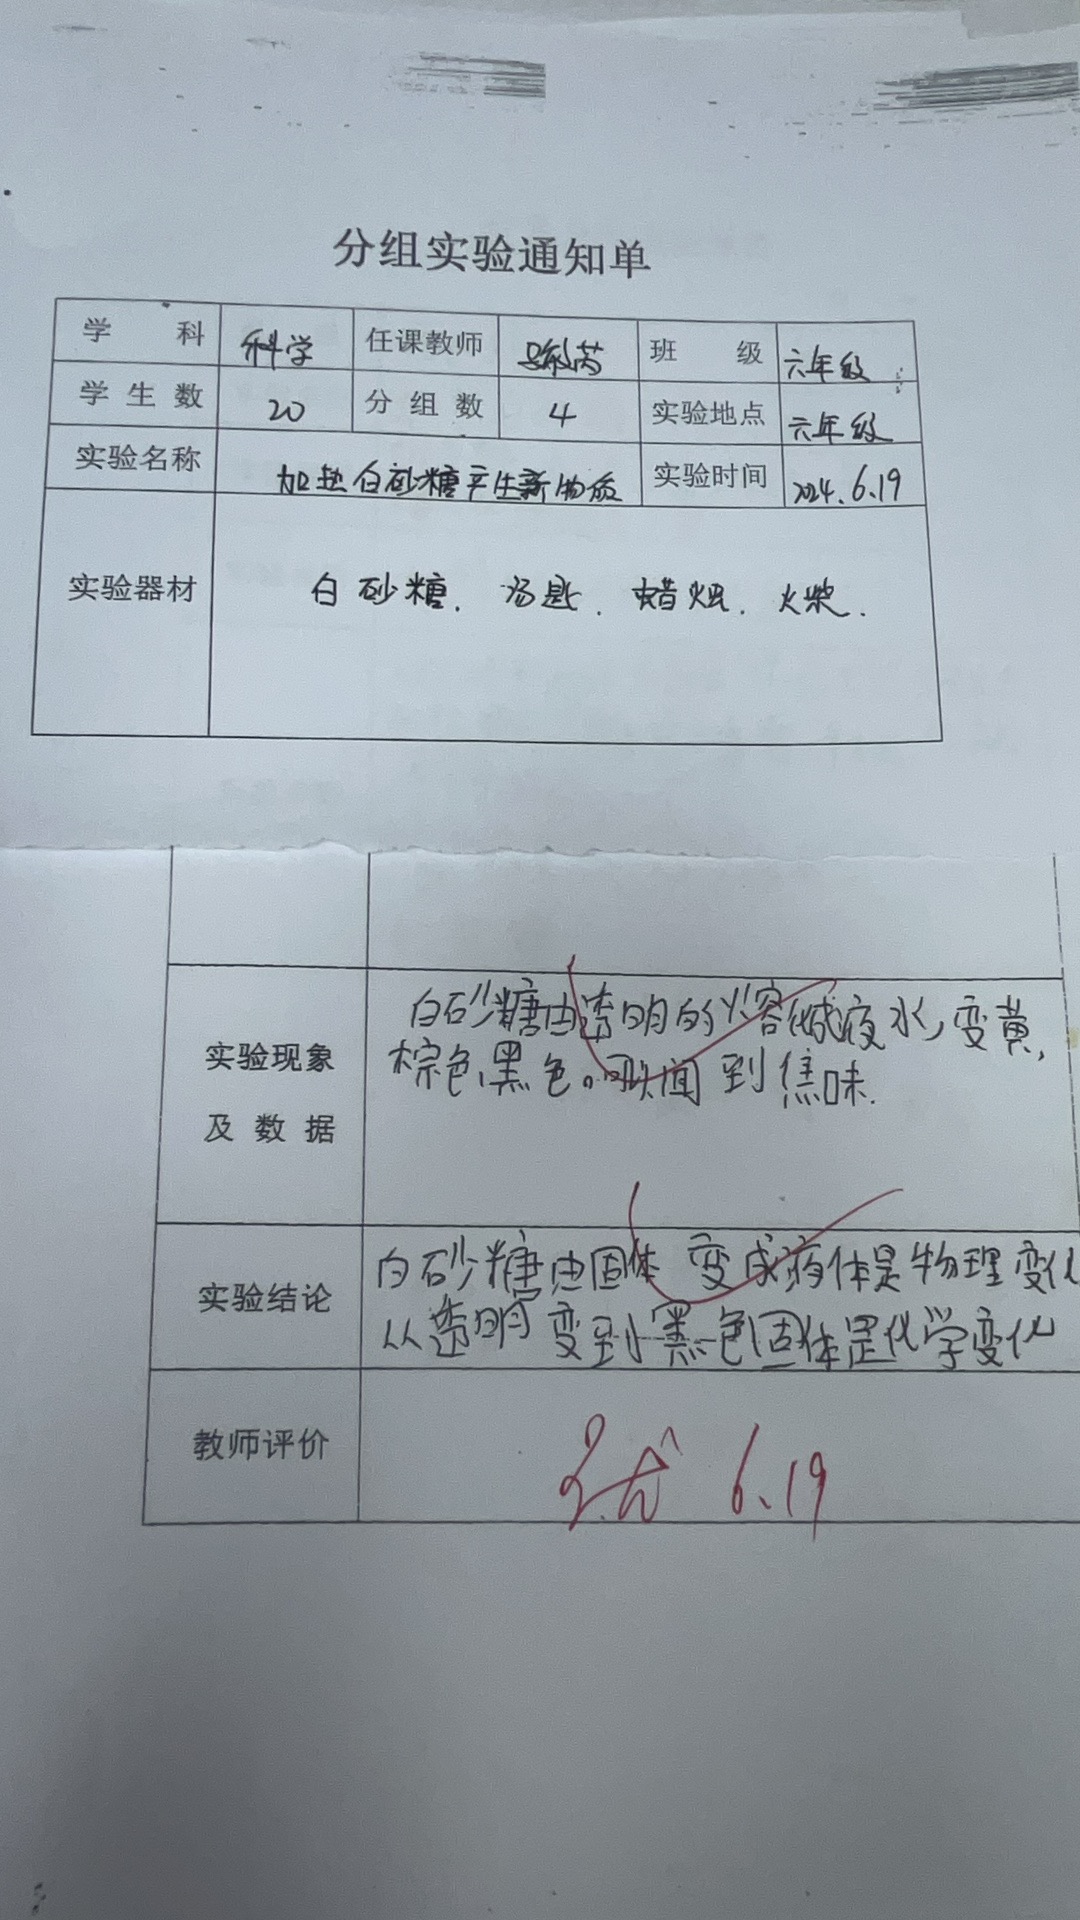 分组实验通知单
学 科 科学 任课教师 班 级 六年级
学生数 20 分组数 4 实验地点 六年级
实验名称 加热白砂糖产生新物质 实验时间 2024.6.19
实验器材 白砂糖. 汤匙. 蜡烛. 火柴.
实验现象
及数据
白砂糖由透明的熔化成液水,变黄,
棕色,黑色。闻到焦味.
实验结论
白砂糖由固体变成液体是物理变化
从透明变到黑色固体是化学变化
教师评价 优 6.19